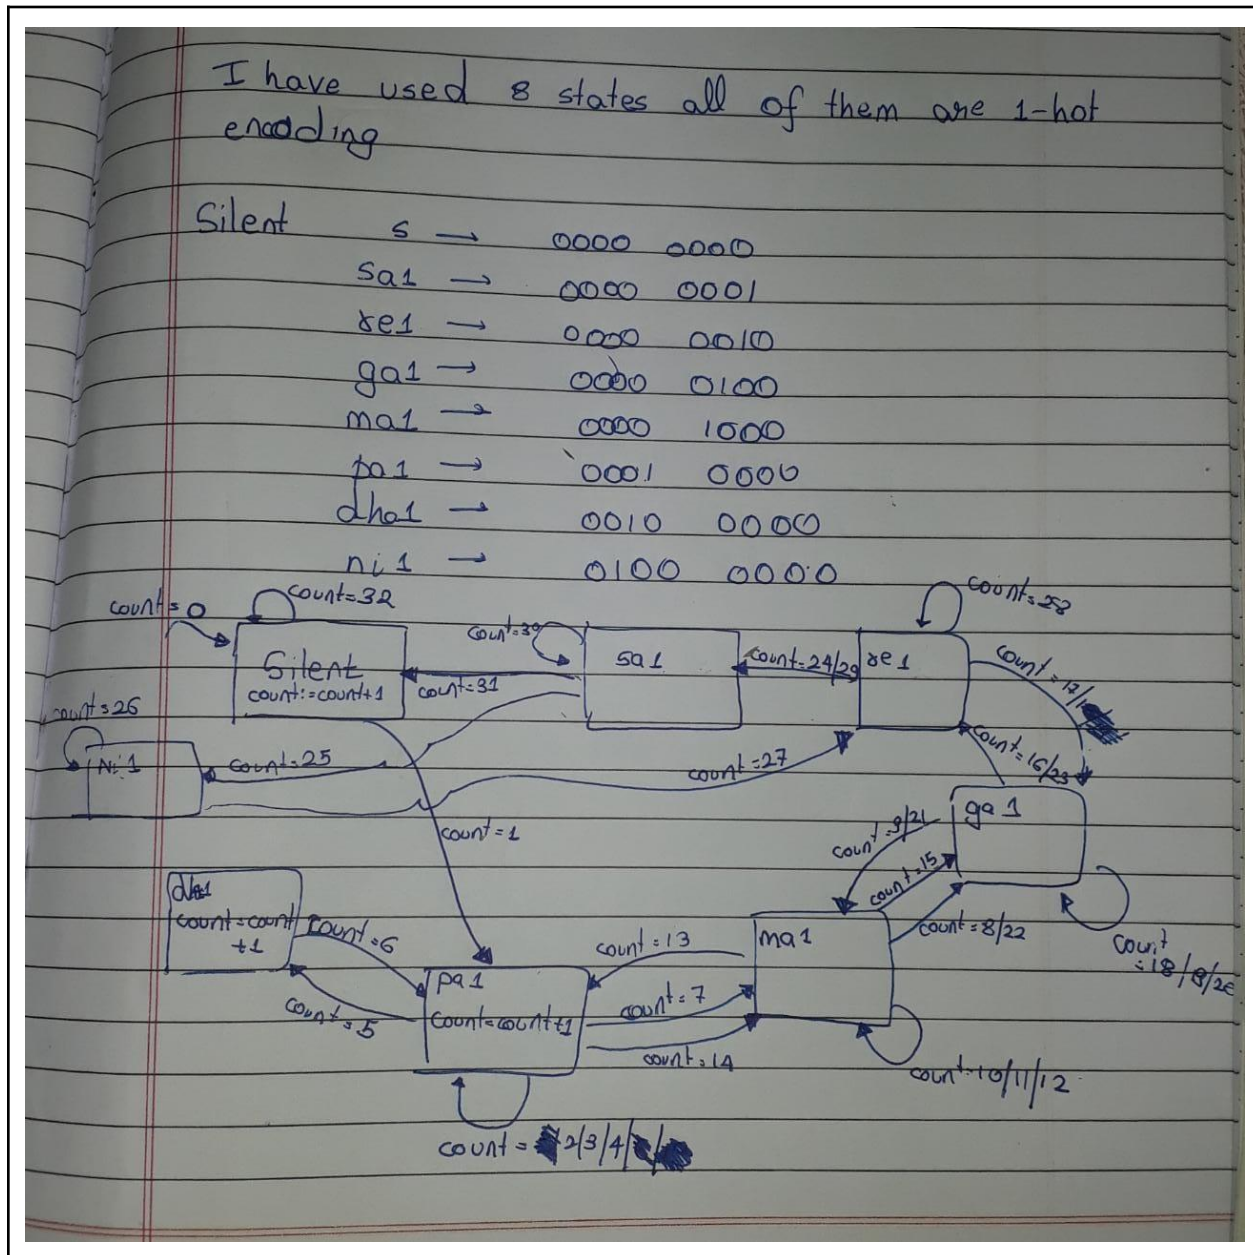 I have used 8 states all of them are 1-hot
encoding
Silent s → 0000 0000
sa1 → 0000 0001
re1 → 0000 0010
ga1 → 0000 0100
ma1 → 0000 1000
pa1 → 0001 0000
dha1 → 0010 0000
ni1 → 0100 0000
count=0
count=32
Silent
count:=count+1
count=31
count=30
sa1
count=24/29
re1
count=28
count=17/
count=16/23
count=26
Ni1
count=25
count=27
count=1
ga1
count=9/21
count=15
count=8/22
count
=18/19/20
dha1
count=count
+1
count=6
count=5
pa1
count=count+1
count=13
count=7
count=14
ma1
count=10/11/12
count = 2/3/4/